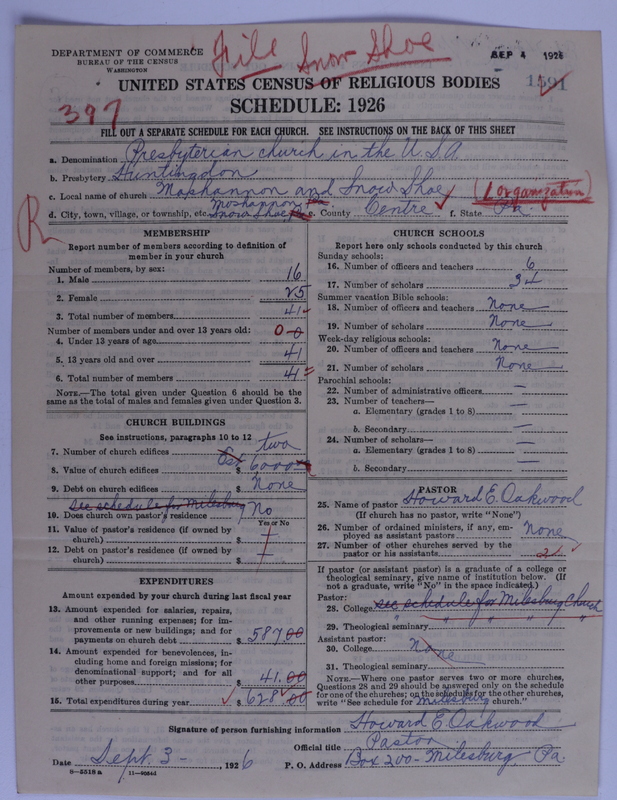 File Snow Shoe
DEPARTMENT OF COMMERCE
BUREAU OF THE CENSUS
WASHINGTON
SEP 4 1926
1591
UNITED STATES CENSUS OF RELIGIOUS BODIES
SCHEDULE: 1926
397
FILL OUT A SEPARATE SCHEDULE FOR EACH CHURCH. SEE INSTRUCTIONS ON THE BACK OF THIS SHEET
a. Denomination Presbyterian church in the U.S.A.
b. Presbytery Huntingdon
c. Local name of church Moshannon and Snow Shoe (1 organization)
Moshannon
d. City, town, village, or township, etc. Snow Shoe e. County Centre f. State Pa.
R
MEMBERSHIP
Report number of members according to definition of
member in your church
Number of members, by sex:
1. Male 16
2. Female 25
3. Total number of members 41
Number of members under and over 13 years old:
4. Under 13 years of age 0
5. 13 years old and over 41
6. Total number of members 41
NOTE.—The total given under Question 6 should be the
same as the total of males and females given under Question 3.
CHURCH BUILDINGS
See instructions, paragraphs 10 to 12
7. Number of church edifices two
8. Value of church edifices Est $ 6000
9. Debt on church edifices $ None
See schedule for Milesburg
10. Does church own pastor's residence No
Yes or No
11. Value of pastor's residence (if owned by
church) $
12. Debt on pastor's residence (if owned by
church) $
EXPENDITURES
Amount expended by your church during last fiscal year
13. Amount expended for salaries, repairs,
and other running expenses; for im-
provements or new buildings; and for
payments on church debt $ 587.00
14. Amount expended for benevolences, in-
cluding home and foreign missions; for
denominational support; and for all
other purposes $ 41.00
15. Total expenditures during year $ 628.00
CHURCH SCHOOLS
Report here only schools conducted by this church
Sunday schools:
16. Number of officers and teachers 6
17. Number of scholars 34
Summer vacation Bible schools:
18. Number of officers and teachers None
19. Number of scholars None
Week-day religious schools:
20. Number of officers and teachers None
21. Number of scholars None
Parochial schools:
22. Number of administrative officers —
23. Number of teachers—
a. Elementary (grades 1 to 8) —
b. Secondary —
24. Number of scholars—
a. Elementary (grades 1 to 8) —
b. Secondary —
PASTOR
25. Name of pastor Howard E. Oakwood
(If church has no pastor, write "None")
26. Number of ordained ministers, if any, em-
ployed as assistant pastors None
27. Number of other churches served by the
pastor or his assistants 2
If pastor (or assistant pastor) is a graduate of a college or
theological seminary, give name of institution below. (If
not a graduate, write "No" in the space indicated.)
Pastor:
28. College see schedule for Milesburg Church
29. Theological seminary " " " " "
Assistant pastor:
30. College None
31. Theological seminary
NOTE.—Where one pastor serves two or more churches,
Questions 28 and 29 should be answered only on the schedule
for one of the churches; on the schedules for the other churches,
write "See schedule for Milesburg church."
Signature of person furnishing information Howard E. Oakwood
Official title Pastor
Date Sept. 3 - , 1926 P. O. Address Box 200 - Milesburg Pa.
8—5518 a 11—9034d